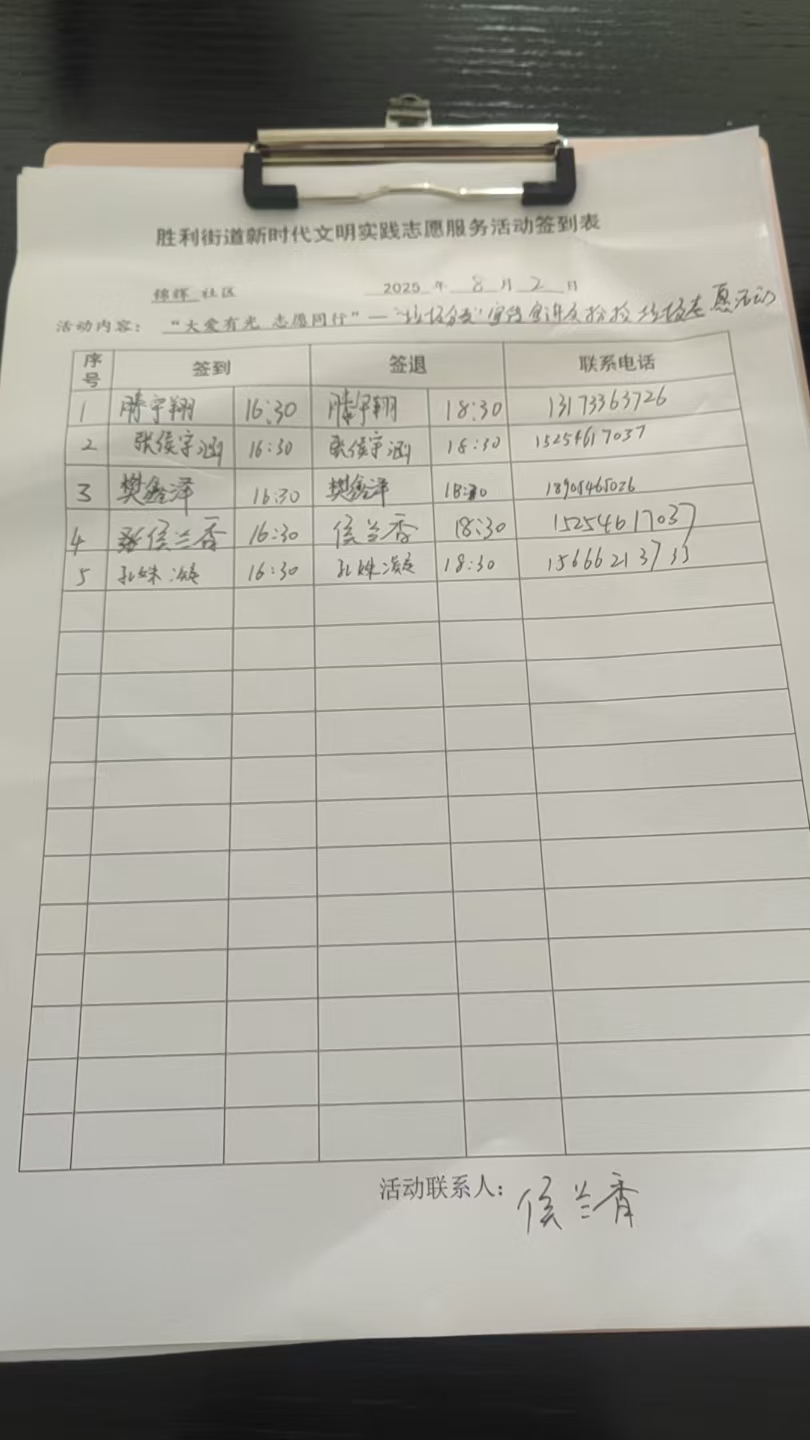 胜利街道新时代文明实践志愿服务活动签到表
锦辉 社区 2025 年 8 月 2 日
活动内容： “大爱有光 志愿同行”—“垃圾分类”宣传宣讲及捡拾垃圾志愿活动
序号 签到 签退 联系电话
1 滕宇翔 16:30 滕宇翔 18:30 13173363726
2 张侯宇涵 16:30 张侯宇涵 18:30 15254617037
3 樊鑫泽 16:30 樊鑫泽 18:30 18905465026
4 侯兰香 16:30 侯兰香 18:30 15254617037
5 孔姝凝 16:30 孔姝凝 18:30 15666213733
活动联系人： 侯兰香